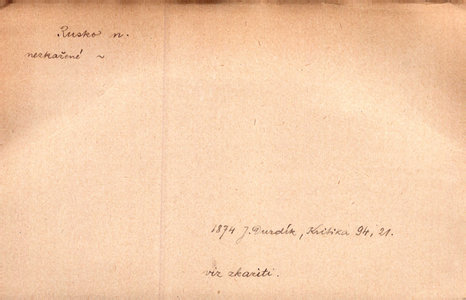 Rusko n.
nezkažené ~
1874 J. Durdík, Kritika 94, 21.
viz zkaziti.